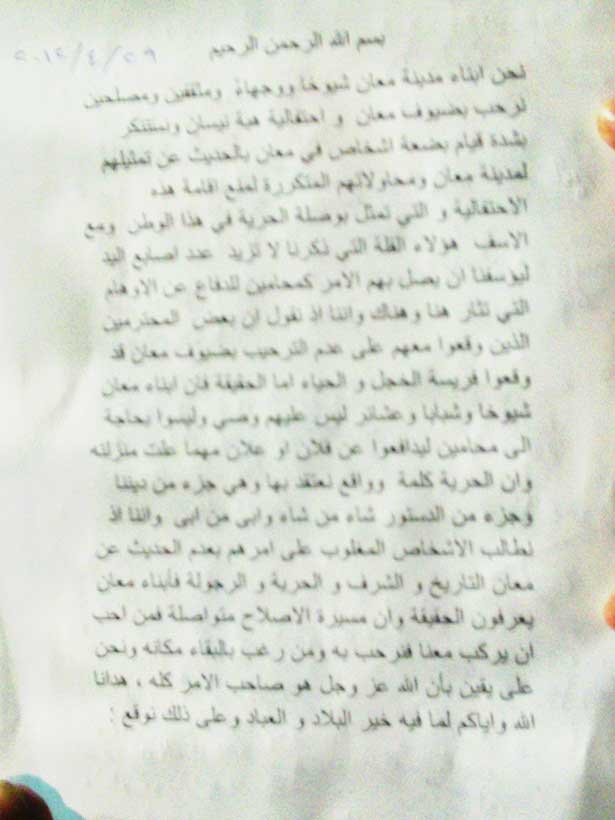 بسم الله الرحمن الرحيم ٢٠١٢/٤/٢٩
نحن ابناء مدينة معان شيوخا ووجهاء ومثقفين ومصلحين
نرحب بضيوف معان و احتفالية هبة نيسان ونستنكر
بشدة قيام بضعة اشخاص في معان بالحديث عن تمثيلهم
لمدينة معان ومحاولاتهم المتكررة لمنع اقامة هذه
الاحتفالية و التي تمثل بوصلة الحرية في هذا الوطن ومع
الاسف هؤلاء القلة التي ذكرنا لا تزيد عند اصابع اليد
ليؤسفنا ان يصل بهم الامر كمحامين للدفاع عن الاوهام
التي تثار هنا وهناك واننا اذ نقول ان بعض المحترمين
الذين وقعوا معهم على عدم الترحيب بضيوف معان قد
وقعوا فريسة الخجل و الحياء اما الحقيقة فان ابناء معان
شيوخا وشبابا وعشائر ليس عليهم وصي وليسوا بحاجة
الى محامين ليدافعوا عن فلان او علان مهما علت منزلته
وان الحرية كلمة وواقع نعتقد بها وهي جزء من ديننا
وجزء من الدستور شاء من شاء وابى من ابى واننا اذ
نطالب الاشخاص المغلوب على امرهم بعدم الحديث عن
معان التاريخ و الشرف و الحرية و الرجولة فأبناء معان
يعرفون الحقيقة وان مسيرة الاصلاح متواصلة فمن احب
ان يركب معنا فنرحب به ومن رغب بالبقاء مكانه ونحن
على يقين بأن الله عز وجل هو صاحب الامر كله ، هدانا
الله واياكم لما فيه خير البلاد و العباد وعلى ذلك نوقع :